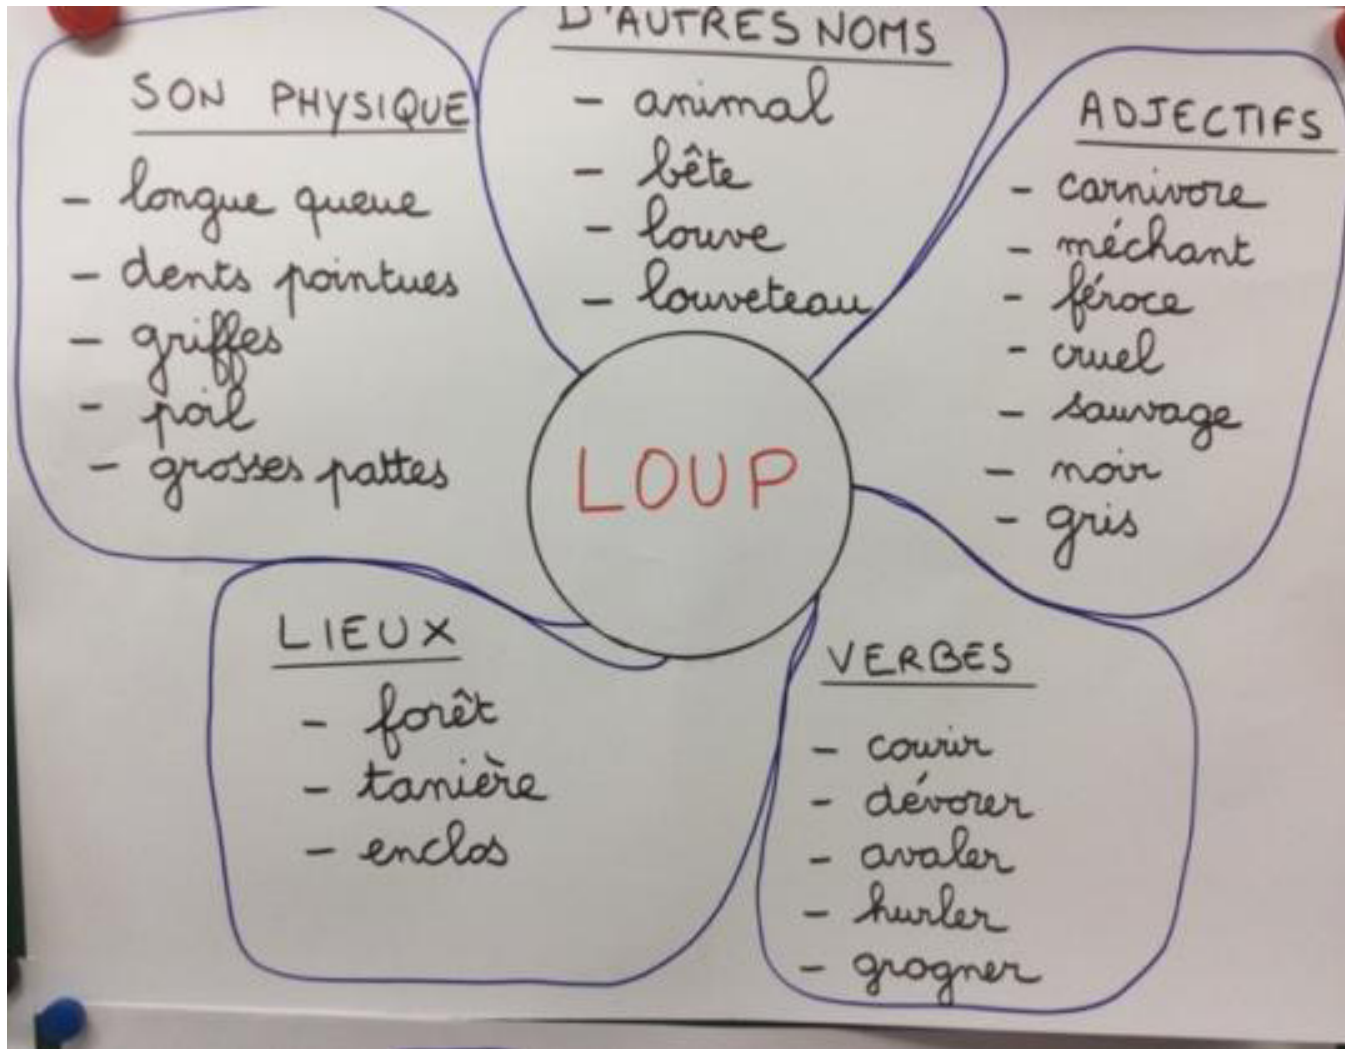 SON PHYSIQUE
- longue queue
- dents pointues
- griffes
- poil
- grosses pattes
D'AUTRES NOMS
- animal
- bête
- louve
- louveteau
ADJECTIFS
- carnivore
- méchant
- féroce
- cruel
- sauvage
- noir
- gris
LOUP
LIEUX
- forêt
- tanière
- enclos
VERBES
- courir
- dévorer
- avaler
- hurler
- grogner